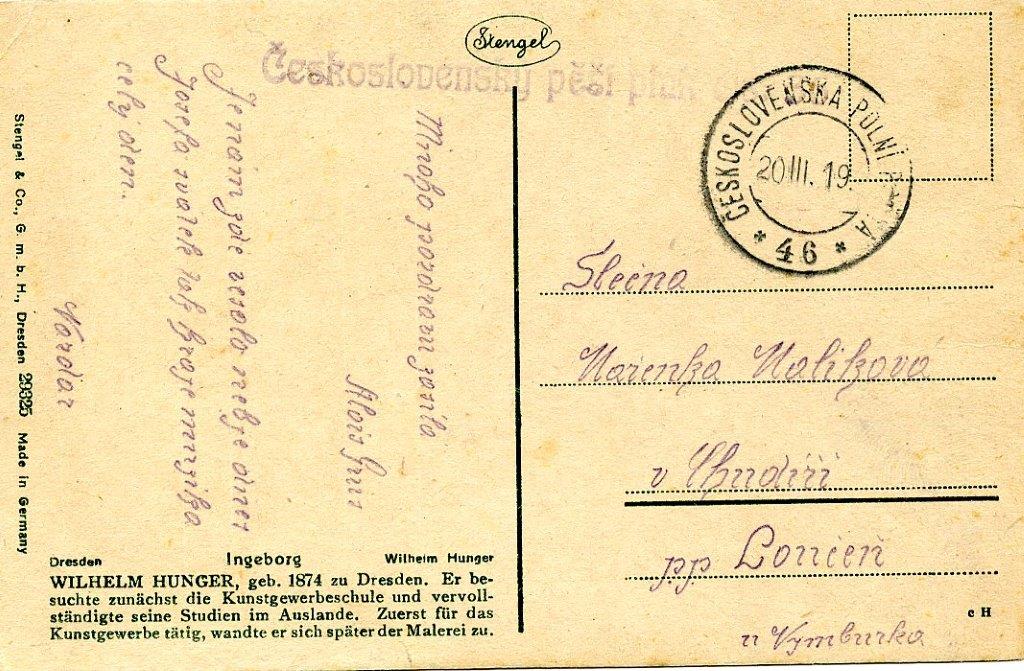 Stengel
Československý pěší pluk
ČESKOSLOVENSKÁ POLNÍ POŠTA
20.III.19
* 46 *
Mnoho pozdravu zasílá
Alois
Jenom zde veselo nebje dnes
Josefa svátek tak hraje muzika
celý den.
Nazdar
Slečna
Mařenka Malíková
v Chudíři
pp Loučeň
u Nymburka
Stengel & Co., G. m. b. H., Dresden 29325 Made in Germany
Dresden Ingeborg Wilhelm Hunger
WILHELM HUNGER, geb. 1874 zu Dresden. Er be-
suchte zunächst die Kunstgewerbeschule und vervoll-
ständigte seine Studien im Auslande. Zuerst für das
Kunstgewerbe tätig, wandte er sich später der Malerei zu.
c H